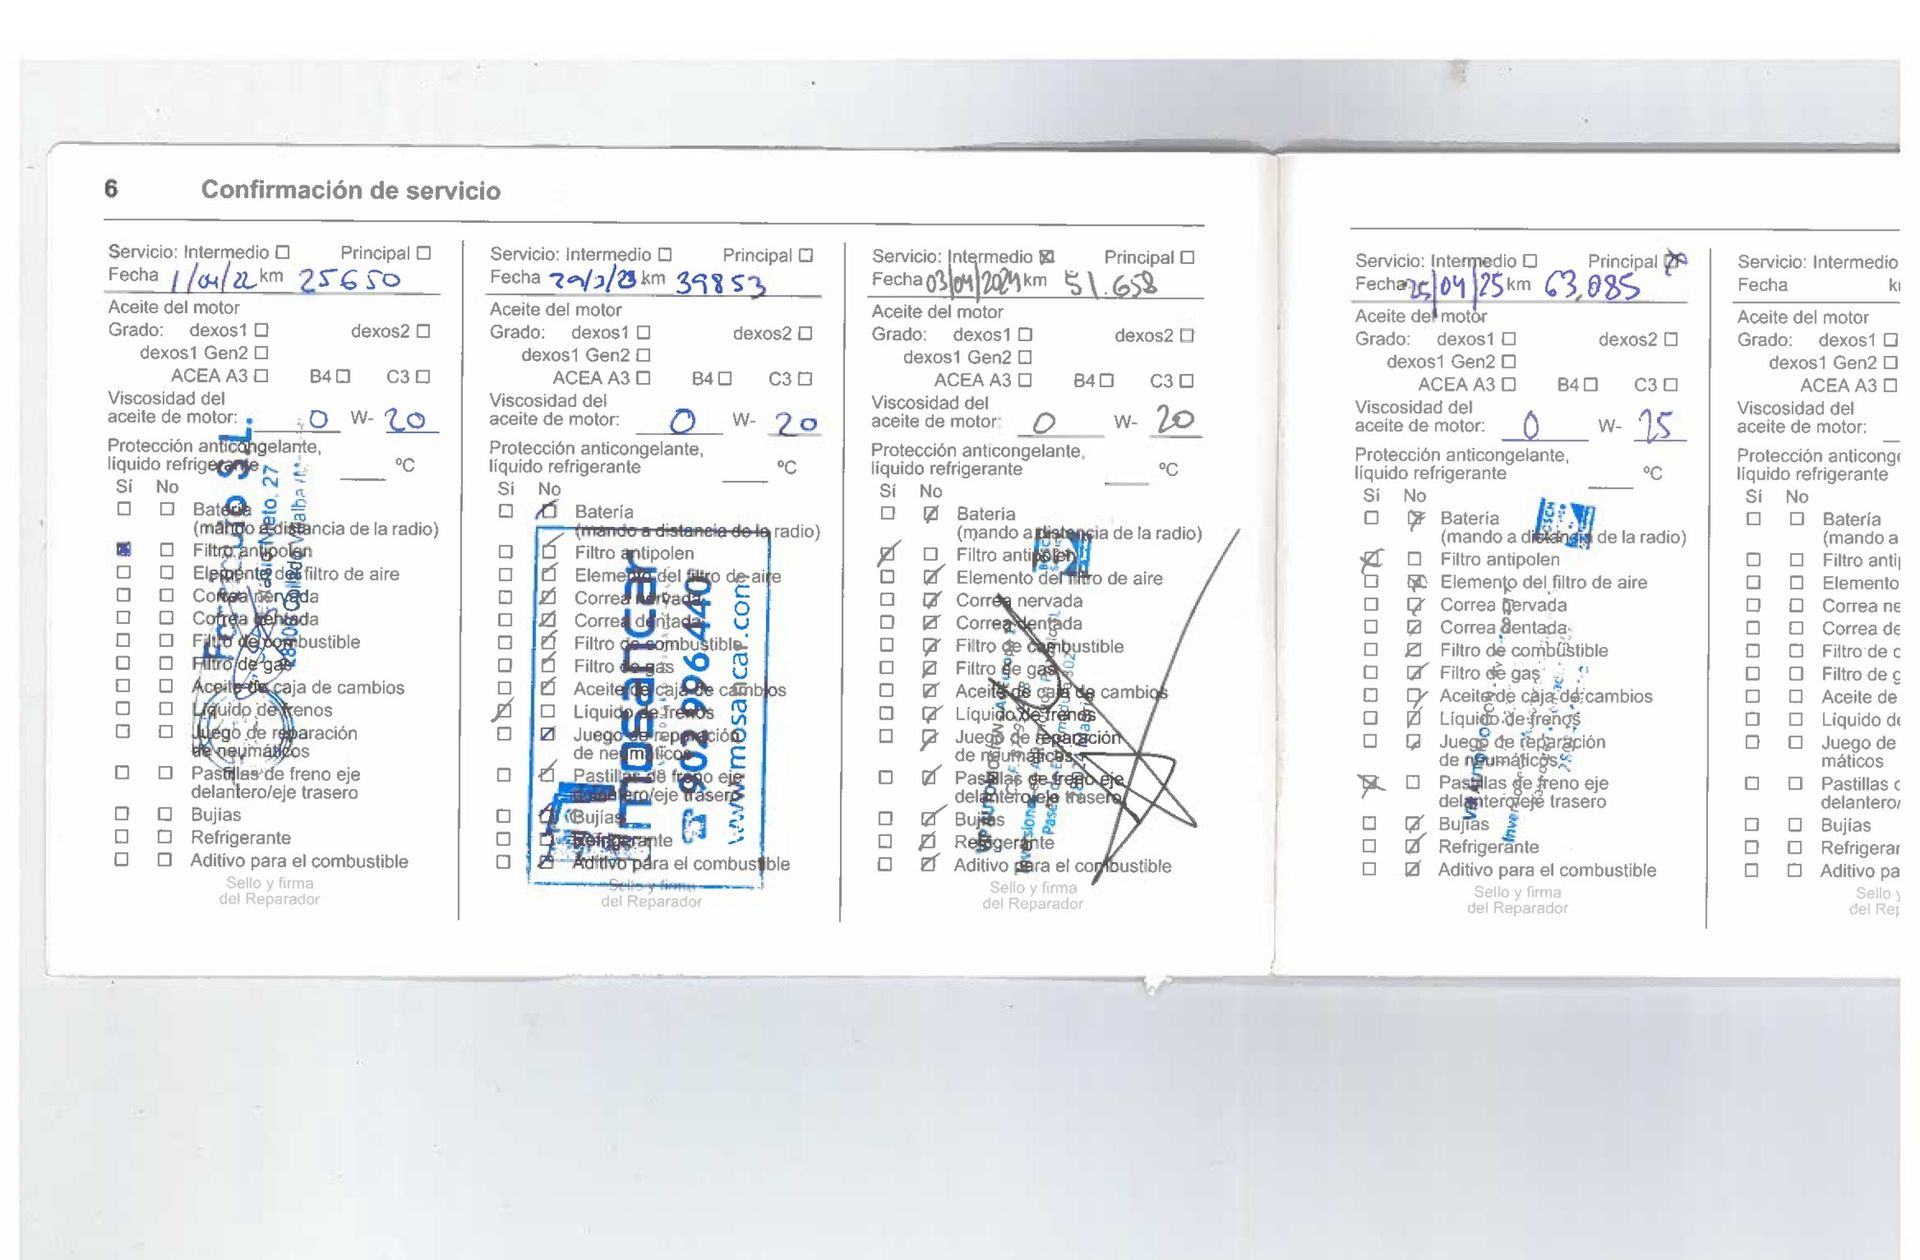 6 Confirmación de servicio
Servicio: Intermedio Principal
Fecha 1/04/22 km 25650
Aceite del motor
Grado: dexos1 dexos2
dexos1 Gen2
ACEA A3 B4 C3
Viscosidad del
aceite de motor: 0 W- 20
Protección anticongelante,
líquido refrigerante ºC
Sí No
Batería
(mando a distancia de la radio)
Filtro antipolen
Elemento del filtro de aire
Correa nervada
Correa dentada
Filtro de combustible
Filtro de gas
Aceite de caja de cambios
Líquido de frenos
Juego de reparación
de neumáticos
Pastillas de freno eje
delantero/eje trasero
Bujías
Refrigerante
Aditivo para el combustible
Sello y firma
del Reparador
S.L.
27
Servicio: Intermedio Principal
Fecha 29/3/23 km 39853
Aceite del motor
Grado: dexos1 dexos2
dexos1 Gen2
ACEA A3 B4 C3
Viscosidad del
aceite de motor: 0 W- 20
Protección anticongelante,
líquido refrigerante ºC
Sí No
Batería
(mando a distancia de la radio)
Filtro antipolen
Elemento del filtro de aire
Correa nervada
Correa dentada
Filtro de combustible
Filtro de gas
Aceite de caja de cambios
Líquido de frenos
Juego de reparación
de neumáticos
Pastillas de freno eje
delantero/eje trasero
Bujías
Refrigerante
Aditivo para el combustible
Sello y firma
del Reparador
mosancar
☎ 902 996 440
www.mosancar.com
Servicio: Intermedio Principal
Fecha 03/04/2024 km 51.658
Aceite del motor
Grado: dexos1 dexos2
dexos1 Gen2
ACEA A3 B4 C3
Viscosidad del
aceite de motor: 0 W- 20
Protección anticongelante,
líquido refrigerante ºC
Sí No
Batería
(mando a distancia de la radio)
Filtro antipolen
Elemento del filtro de aire
Correa nervada
Correa dentada
Filtro de combustible
Filtro de gas
Aceite de caja de cambios
Líquido de frenos
Juego de reparación
de neumáticos
Pastillas de freno eje
delantero/eje trasero
Bujías
Refrigerante
Aditivo para el combustible
Sello y firma
del Reparador
BOSCH
Servicio: Intermedio Principal
Fecha 25/04/25 km 63,085
Aceite del motor
Grado: dexos1 dexos2
dexos1 Gen2
ACEA A3 B4 C3
Viscosidad del
aceite de motor: 0 W- 25
Protección anticongelante,
líquido refrigerante ºC
Sí No
Batería
(mando a distancia de la radio)
Filtro antipolen
Elemento del filtro de aire
Correa nervada
Correa dentada
Filtro de combustible
Filtro de gas
Aceite de caja de cambios
Líquido de frenos
Juego de reparación
de neumáticos
Pastillas de freno eje
delantero/eje trasero
Bujías
Refrigerante
Aditivo para el combustible
Sello y firma
del Reparador
BOSCH
Servicio: Intermedio
Fecha
Aceite del motor
Grado: dexos1
dexos1 Gen2
ACEA A3
Viscosidad del
aceite de motor:
Protección anticonge
líquido refrigerante
Sí No
Batería
(mando a
Filtro anti
Elemento
Correa ne
Correa de
Filtro de c
Filtro de g
Aceite de
Líquido de
Juego de
máticos
Pastillas
delantero/
Bujías
Refrigerar
Aditivo pa
Sello y
del Rep